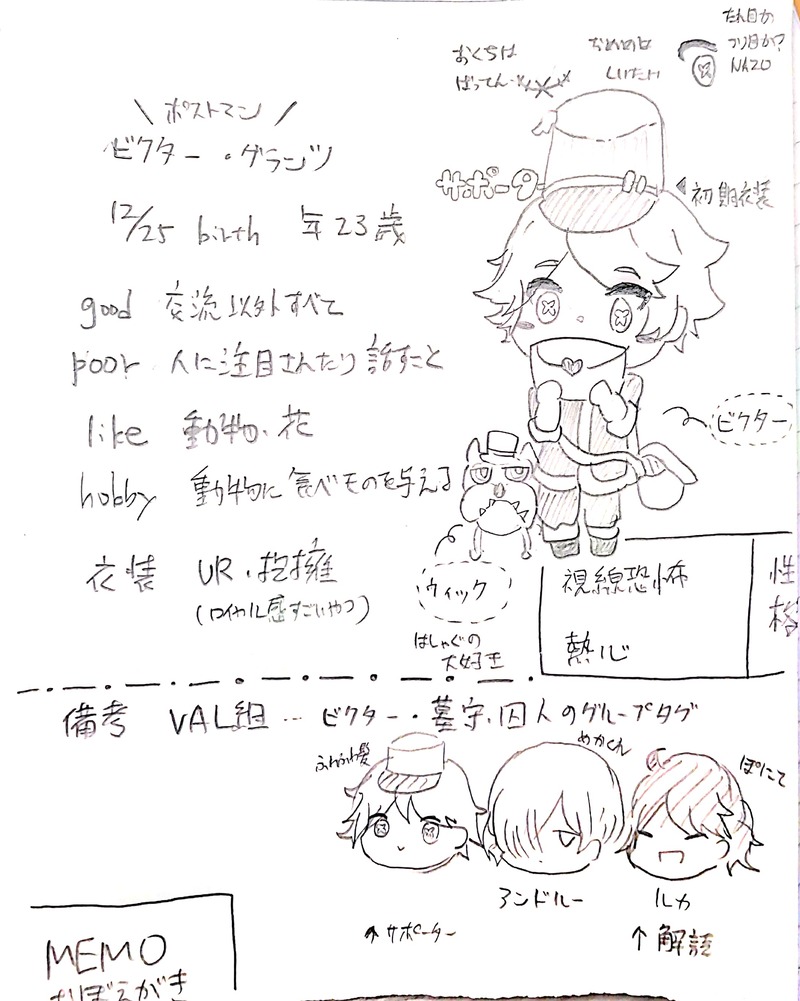 たれ目か
ツリ目か?
NAZO
おくちは
ばってん
おめめは
しいたけ
\ ポストマン /
ビクター・グランツ
サポータ
初期衣装
12/25 birth 年23歳
good 交流以外すべて
poor 人に注目さんたり話すこと
like 動物、花
hobby 動物に食べものを与える
ビクター
衣装 UR・抱擁
(ロイヤル感すごいやつ)
ウィック
はしゃぐの
大好き
視線恐怖
熱心
性
格
備考 VAL組…ビクター・墓守、囚人のグループタグ
ふわふわ髪
めかくれ
ぽにて
アンドルー
ルカ
↑サポーター
↑解読
MEMO
おぼえがき